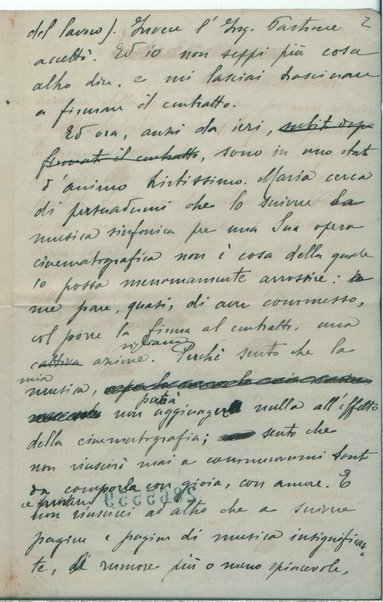 2
del lavoro). Invece l'Ing. Fassini
accettò. Ed io non seppi più cosa
altro dire, e mi lasciai trascinare
a firmare il contratto.
Ed ora, anzi da ieri, subito dopo
firmato il contratto, sono in uno stato
d'animo tristissimo. Maria cerca
di persuadermi che lo scrivere la
musica sinfonica per una Sua opera
cinematografica non è cosa della quale
io possa menomamente arrossire:
me pare, quasi, di aver commesso,
col porre la firma al contratto, una
cattiva azione. Perchè sento che la
mia
musica,
potrà
non aggiungere nulla all'effetto
della cinematografia; sento che
non riuscirò mai a commuovermi tanto
da comporla con gioia, con amore. E
non riuscirei ad altro che a scrivere
pagine e pagine di musica insignifican-
te, di rumore più o meno spiacevole,